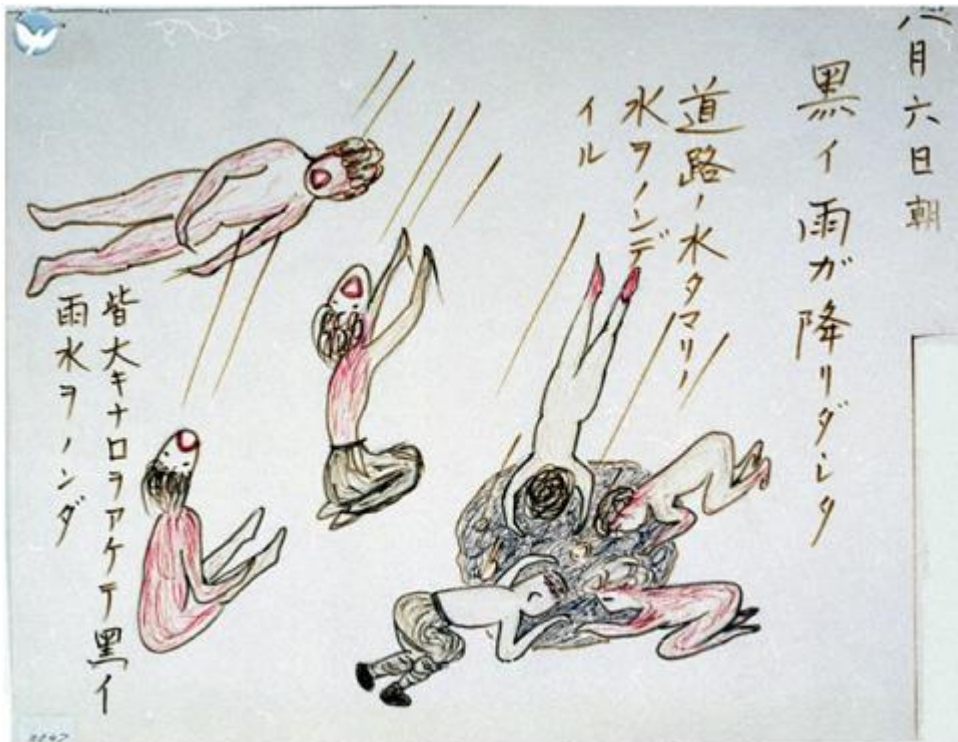 八月六日朝
黒イ雨ガ降リダシタ
道路ノ水タマリノ
水ヲノンデ
イル
皆大キナ口ヲアケテ黒イ
雨水ヲノンダ